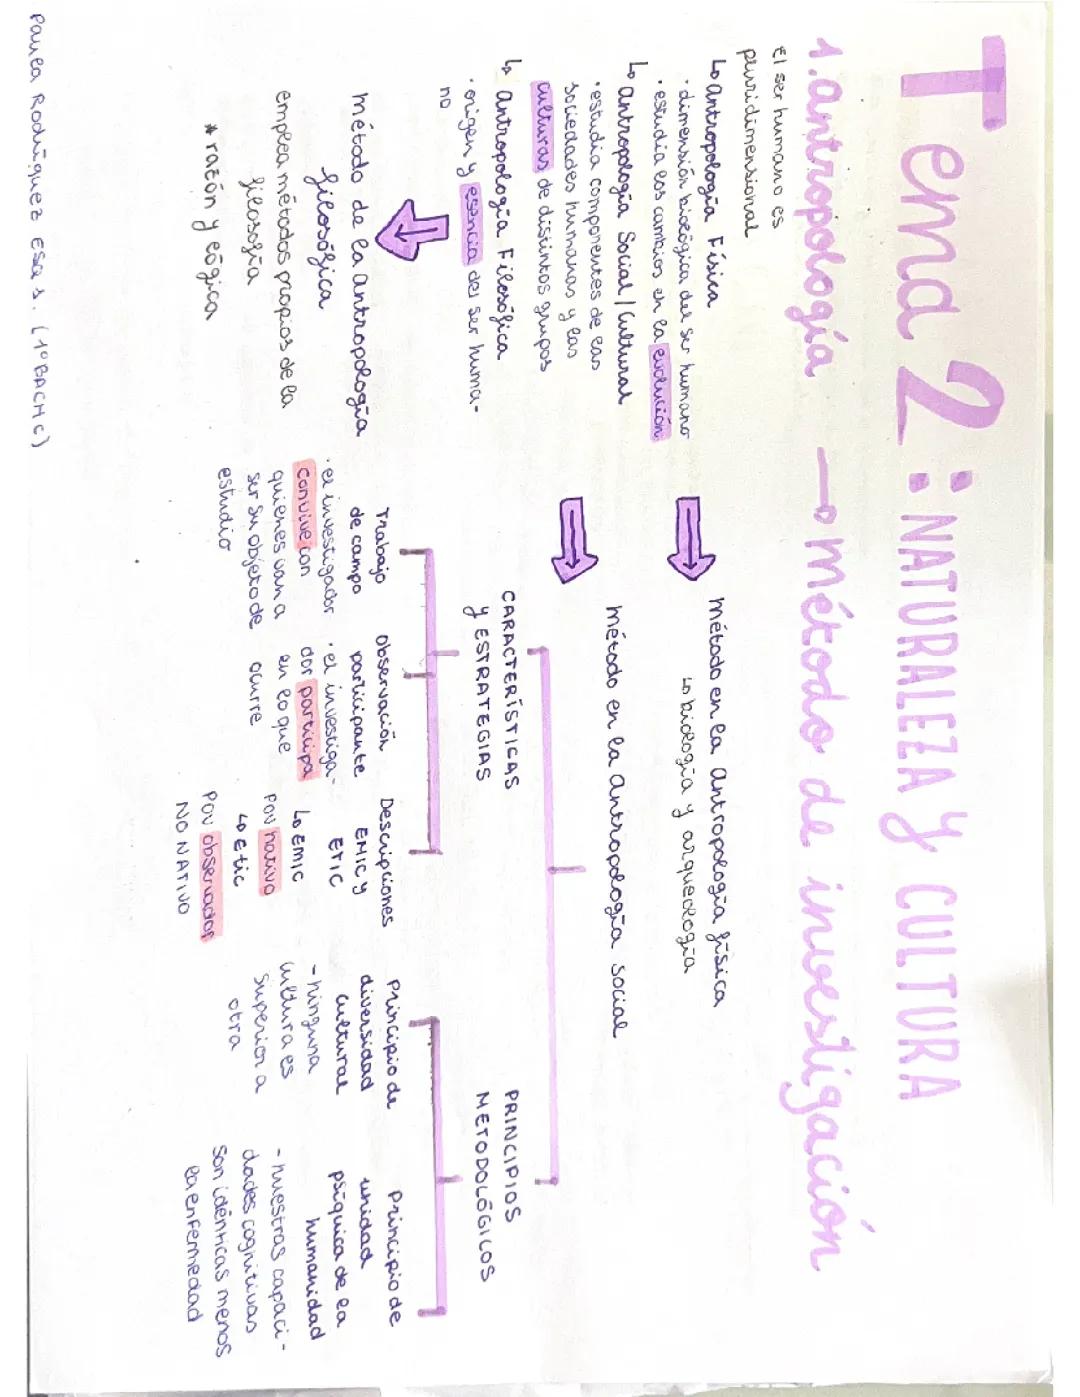 Tema 2: NATURALEZA Y CULTURA
1. antropología → método de investigación
El ser humano es
pluridimensional
↳ antropología Física
· dimensión biológica del ser humano
· estudia los cambios en la evolución
↳ Antropología Social / Cultural
· estudia componentes de las
sociedades humanas y las
culturas de distintos grupos
↳ Antropología Filosófica
· origen y esencia del ser huma-
no
Método de la antropología
filosófica
emplea métodos propios de la
filosofía
* razón y lógica
Método en la antropología física
↳ biología y arqueología
método en la antropología social
CARACTERÍSTICAS
Y ESTRATEGIAS
Trabajo
de campo
· el investigador
convive con
quienes van a
ser su objeto de
estudio
Observación
participante
· el investiga-
dor participa
en lo que
ocurre
Descripciones
EMIC y
ETIC
↳ Emic
POV nativo
↳ Etic
POV observador
NO NATIVO
PRINCIPIOS
METODOLÓGICOS
Principio de
diversidad
cultural
- ninguna
cultura es
superior a
otra
Principio de
unidad
psíquica de la
humanidad
- nuestras capaci-
dades cognitivas
son idénticas menos
la enfermedad
Paula Rodríguez Esas. (1º BACH C)